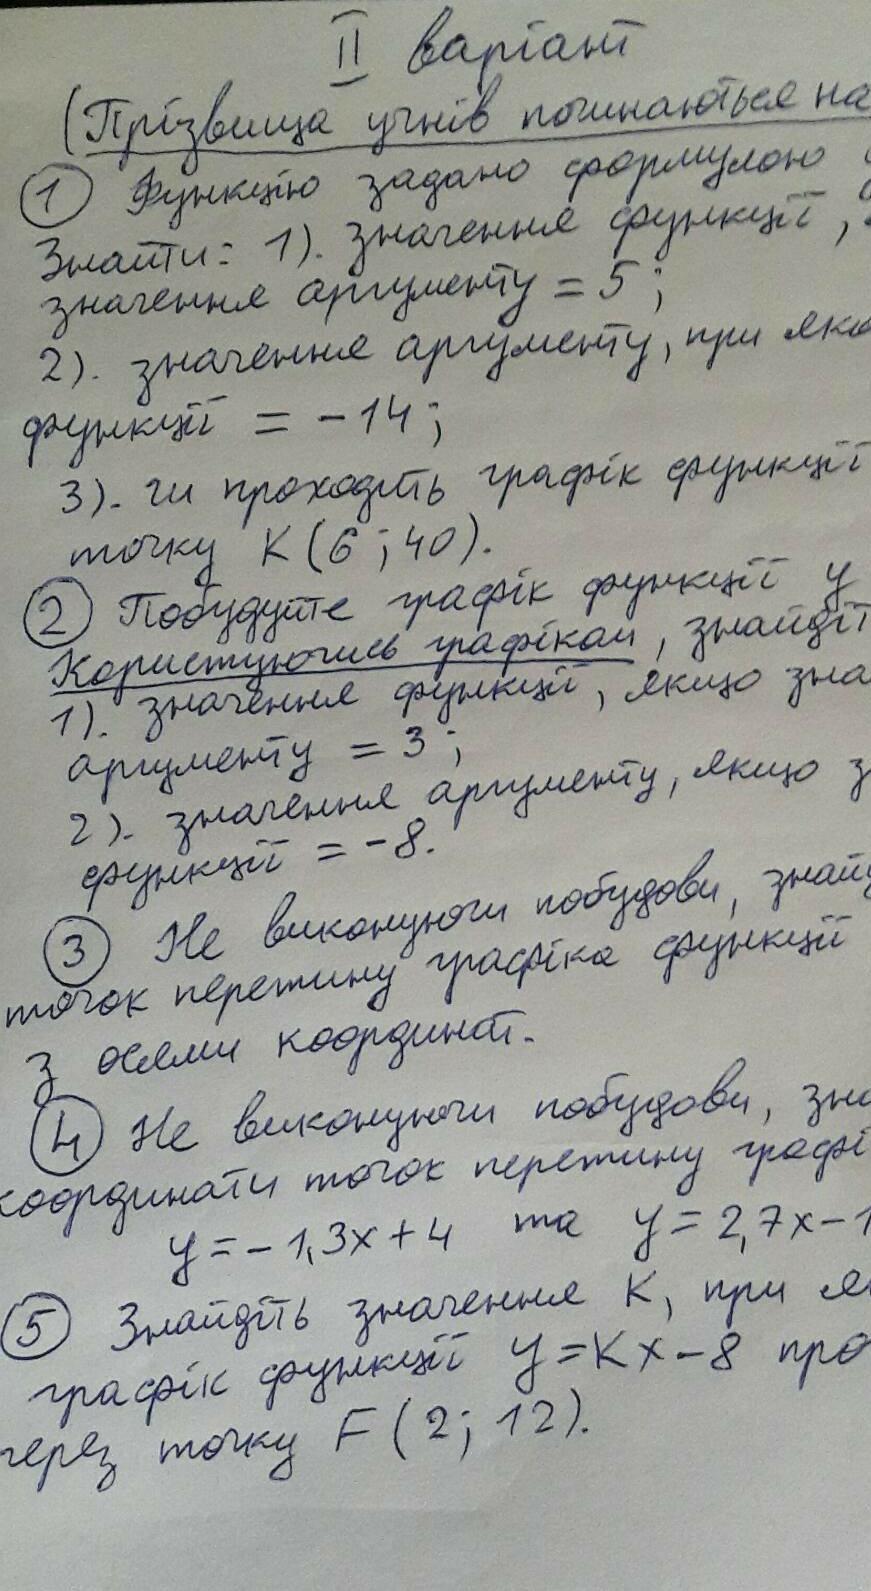 II варіант
(Прізвища учнів починаються на
1 Функцію задано формулою
Знайти: 1). значення функції,
значення аргументу = 5;
2). значення аргументу, при яко
функції = -14;
3). чи проходить графік функції
точку К(6; 40).
2 Побудуйте графік функції у
Користуючись графіком, знайдіт
1). значення функції, якщо зна
аргументу = 3;
2). значення аргументу, якщо з
функції = -8.
3 Не виконуючи побудови, знай
точок перетину графіка функції
з осями координат.
4 Не виконуючи побудови, зна
координати точок перетину графі
у = -1,3х + 4 та у = 2,7х - 1
5 Знайдіть значення К, при як
графік функції у = Кх - 8 про
через точку F(2; 12).